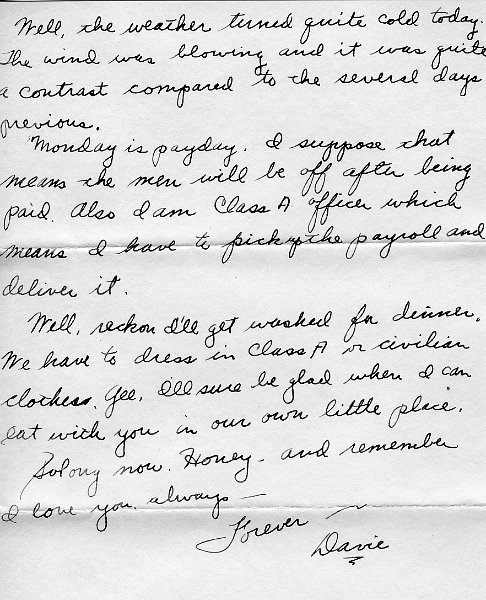 Well, the weather turned quite cold today.
The wind was blowing and it was quite
a contrast compared to the several days
previous.
Monday is payday. I suppose that
means the men will be off after being
paid. Also I am Class A officer which
means I have to pickup the payroll and
deliver it.
Well, reckon I'll get washed for dinner.
We have to dress in Class A or civilian
clothess. Gee, I'll sure be glad when I can
eat with you in our own little place.
Solong now. Honey - and remember
I love you always —
Forever —
Davie